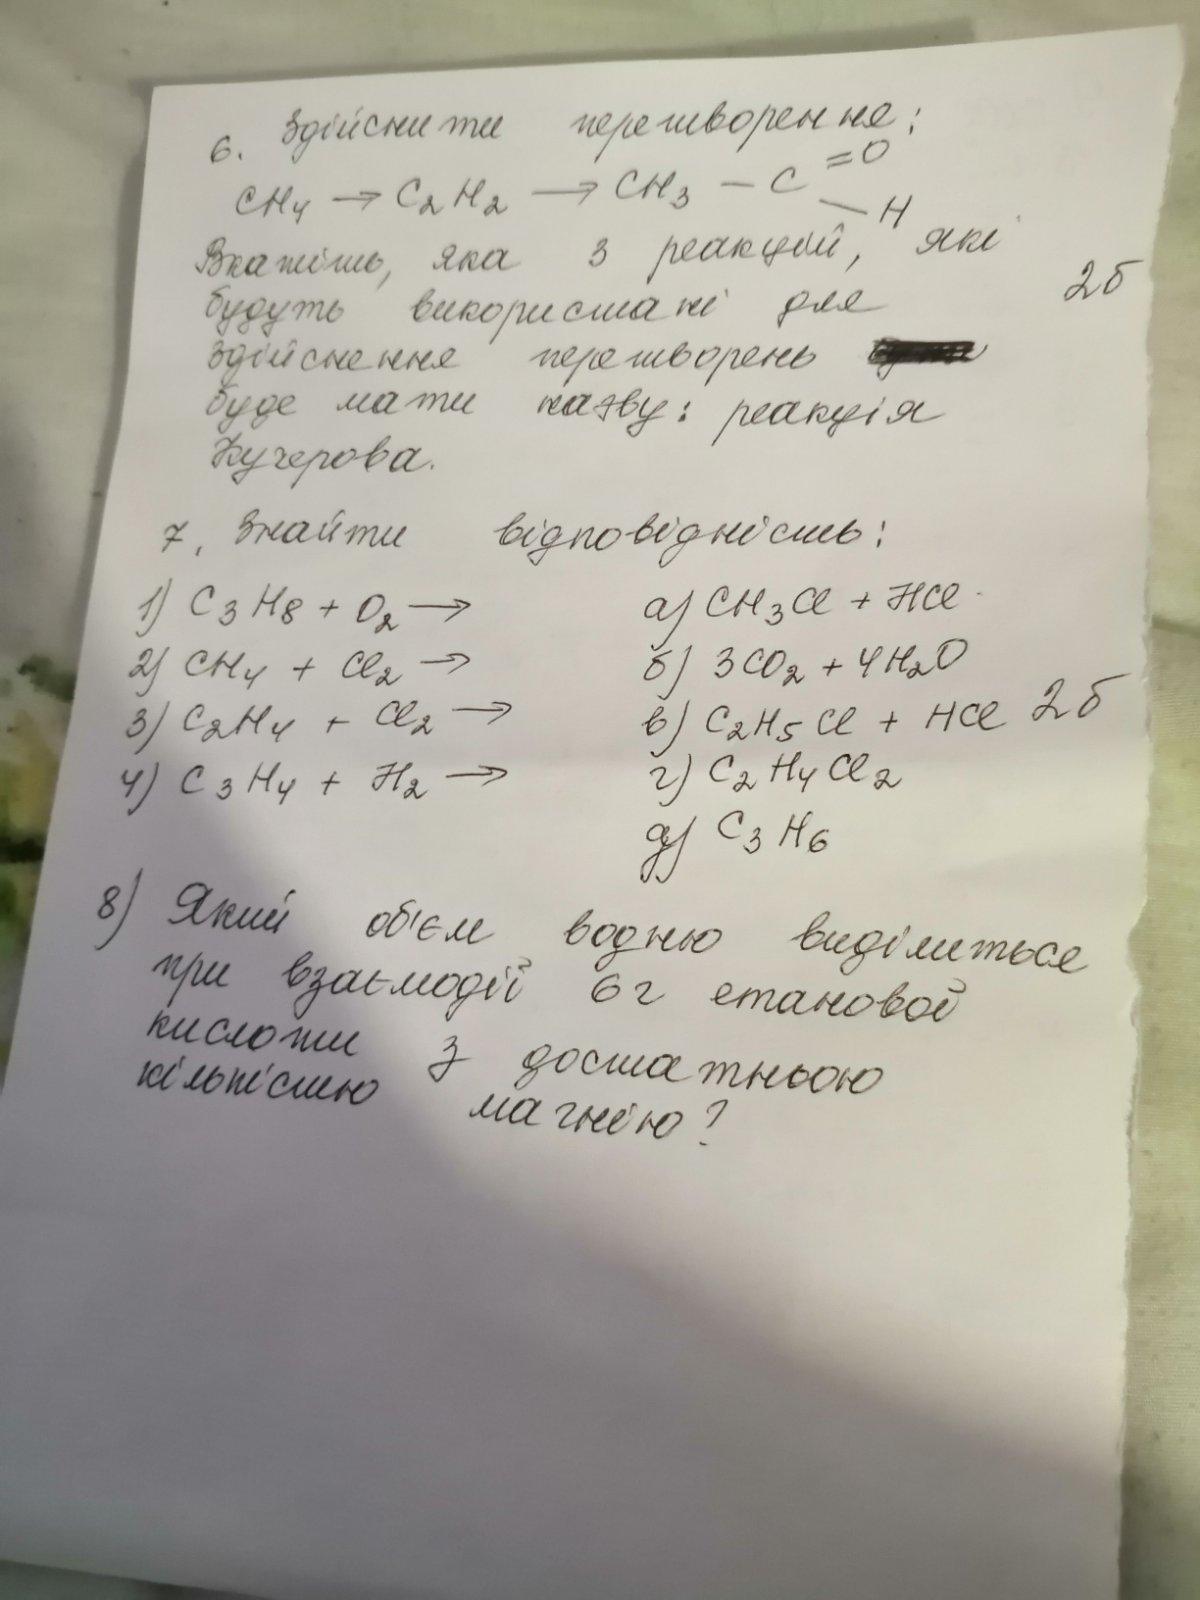 6. Здійснити перетворення:
CH4 → C2H2 → CH3 – C =O
– H
Вкажіть, яка з реакцій, які
будуть використані для 2б
здійснення перетворень
буде мати назву: реакція
Кучерова.
7. Знайти відповідність:
1) C3H8 + O2 → а) CH3Cl + HCl
2) CH4 + Cl2 → б) 3CO2 + 4H2O
3) C2H4 + Cl2 → в) C2H5Cl + HCl 2б
4) C3H4 + H2 → г) C2H4Cl2
д) C3H6
8) Який об'єм водню виділиться
при взаємодії 6г етанової
кислоти з достатньою
кількістю магнію?